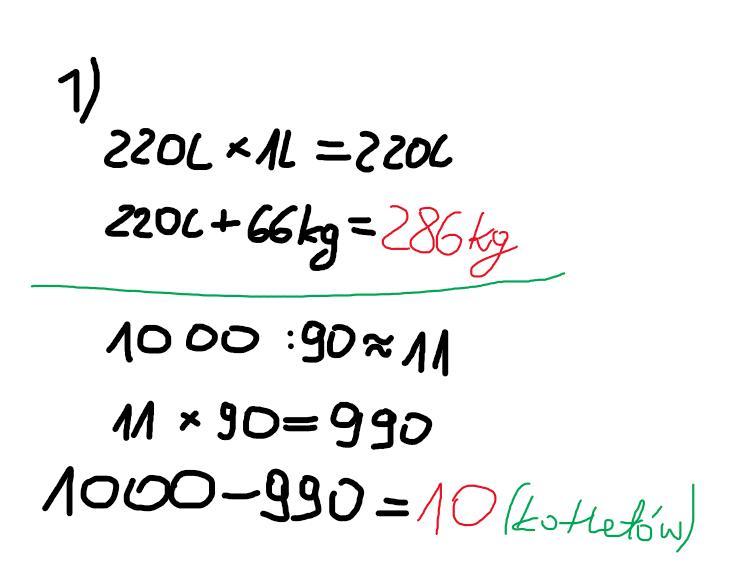 1)
220L × 1L = 220L
220L + 66kg = 286kg
1000 : 90 ≈ 11
11 × 90 = 990
1000 - 990 = 10 (kotletów)